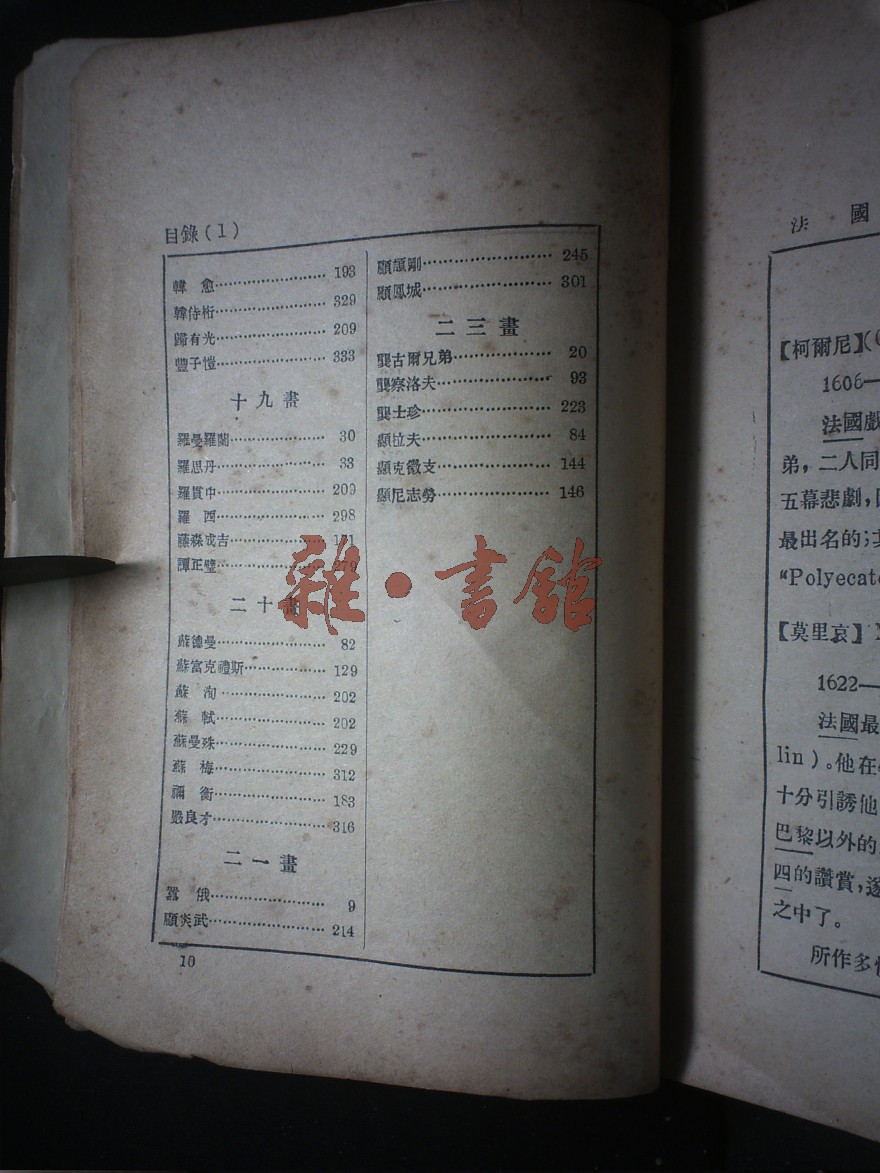 目錄(1)
韓愈 193
韓侍桁 329
歸有光 209
豐子愷 333
十九畫
羅曼羅蘭 30
羅思丹 33
羅貫中 209
羅西 298
藤森成吉
譚正璧 279
二十畫
蘇德曼 82
蘇富克禮斯 129
蘇洵 202
蘇軾 202
蘇曼殊 229
蘇梅 312
禰衡 183
嚴良才 316
二一畫
囂俄 9
顧炎武 214
顧頡剛 245
顧鳳城 301
二三畫
龔古爾兄弟 20
龔察洛夫 93
龔士珍 223
顯拉夫 84
顯克微支 144
顯尼志勞 146
10
雜·書館
法國
【柯爾尼】(
1606—
法國戲
弟,二人同
五幕悲劇,
最出名的;
“Polyecat
【莫里哀】
1622—
法國最
lin)。他在
十分引誘他
巴黎以外的
四的讚賞,逐
之中了。
所作多